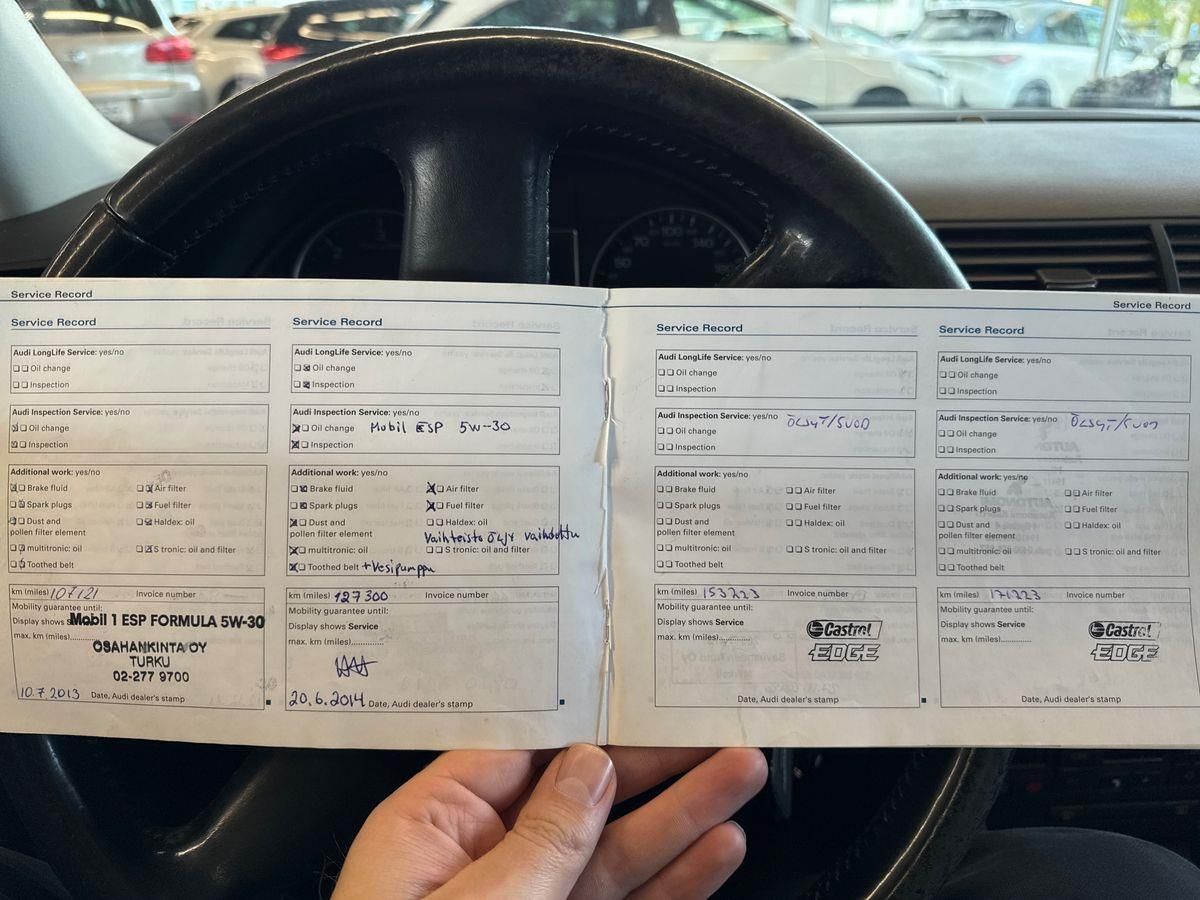 Service Record
Service Record
Audi LongLife Service: yes/no
Oil change
Inspection
Audi Inspection Service: yes/no
Oil change
Inspection
Additional work: yes/no
Brake fluid
Air filter
Spark plugs
Fuel filter
Dust and
pollen filter element
Haldex: oil
multitronic: oil
S tronic: oil and filter
Toothed belt
km (miles) 107121 Invoice number
Mobility guarantee until:
Display shows
Mobil 1 ESP FORMULA 5W-30
max. km (miles)
OSAHANKINTA OY
TURKU
02-277 9700
10.7.2013 Date, Audi dealer's stamp
Service Record
Audi LongLife Service: yes/no
Oil change
Inspection
Audi Inspection Service: yes/no
Oil change Mobil ESP 5W-30
Inspection
Additional work: yes/no
Brake fluid
Air filter
Spark plugs
Fuel filter
Dust and
pollen filter element
Haldex: oil
Vaihteisto öljy vaihdettu
multitronic: oil
S tronic: oil and filter
Toothed belt + Vesipumppu
km (miles) 127300 Invoice number
Mobility guarantee until:
Display shows Service
max. km (miles)..............
20.6.2014 Date, Audi dealer's stamp
Service Record
Service Record
Audi LongLife Service: yes/no
Oil change
Inspection
Audi Inspection Service: yes/no ÖLJYT/SUOD
Oil change
Inspection
Additional work: yes/no
Brake fluid
Air filter
Spark plugs
Fuel filter
Dust and
pollen filter element
Haldex: oil
multitronic: oil
S tronic: oil and filter
Toothed belt
km (miles) 153223 Invoice number
Mobility guarantee until:
Display shows Service
max. km (miles)..............
Castrol
EDGE
Date, Audi dealer's stamp
Service Record
Audi LongLife Service: yes/no
Oil change
Inspection
Audi Inspection Service: yes/no ÖLJYT/SUOD
Oil change
Inspection
Additional work: yes/no
Brake fluid
Air filter
Spark plugs
Fuel filter
Dust and
pollen filter element
Haldex: oil
multitronic: oil
S tronic: oil and filter
Toothed belt
km (miles) 171223 Invoice number
Mobility guarantee until:
Display shows Service
max. km (miles)..............
Castrol
EDGE
Date, Audi dealer's stamp